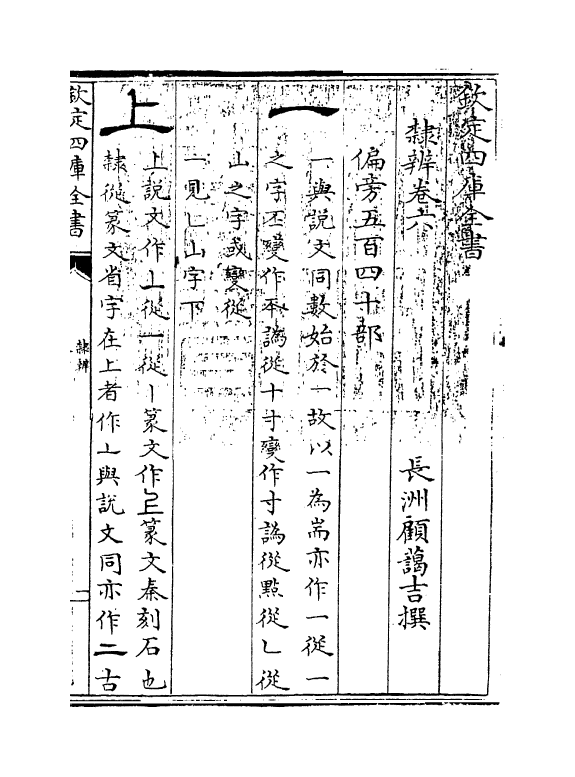 欽定四庫全書
隸辨卷六
長洲顧藹吉撰
偏旁五百四十部
一
一與說文同數始於一故以一為耑亦作一從一
之字丕變作㔻譌從十寸變作寸譌從點從乚從
山之字或變從
一見乚山字下
上
上說文作丄從一從丨篆文作𠄞篆文秦刻石也
隸從篆文省字在上者作亠與說文同亦作二古
欽定四庫全書
隸辨